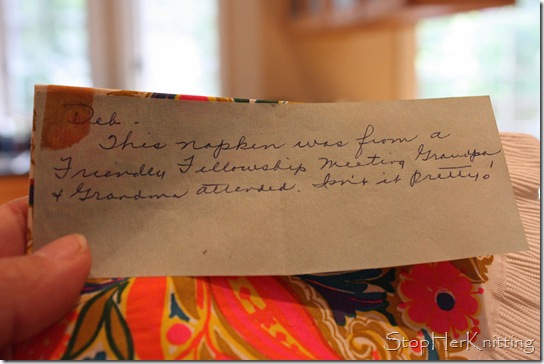 Deb -
This napkin was from a
Friendly Fellowship Meeting Grandpa
& Grandma attended. Isn't it pretty!
StopHerKnitting